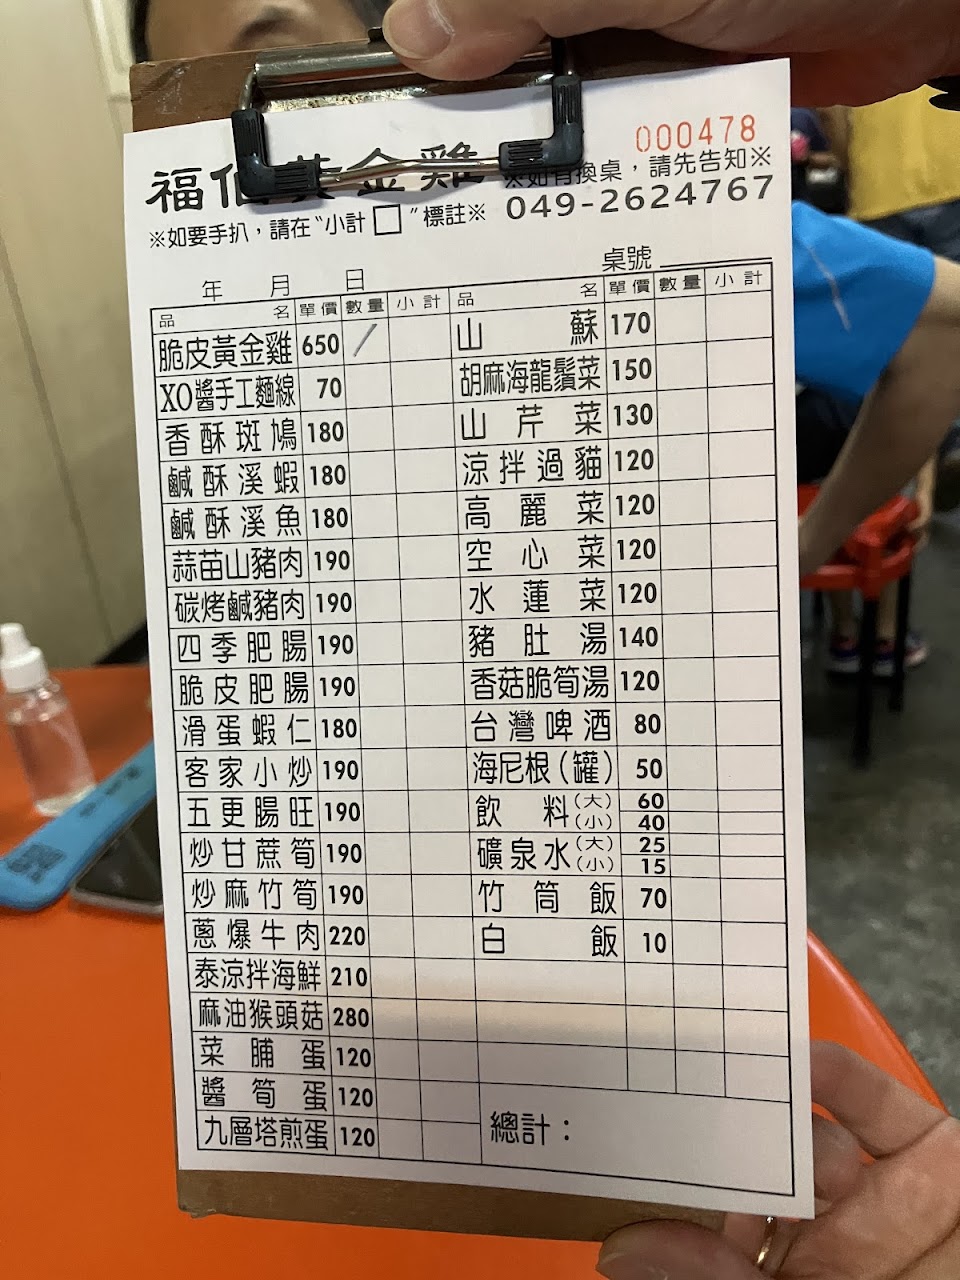 000478
福伯黃金雞
※如有換桌，請先告知※
※如要手扒，請在“小計□”標註※
049-2624767
年 月 日
桌號
品名 單價 數量 小計
脆皮黃金雞 650 /
XO醬手工麵線 70
香酥斑鳩 180
鹹酥溪蝦 180
鹹酥溪魚 180
蒜苗山豬肉 190
碳烤鹹豬肉 190
四季肥腸 190
脆皮肥腸 190
滑蛋蝦仁 180
客家小炒 190
五更腸旺 190
炒甘蔗筍 190
炒麻竹筍 190
蔥爆牛肉 220
泰涼拌海鮮 210
麻油猴頭菇 280
菜脯蛋 120
醬筍蛋 120
九層塔煎蛋 120
品名 單價 數量 小計
山蘇 170
胡麻海龍鬚菜 150
山芹菜 130
涼拌過貓 120
高麗菜 120
空心菜 120
水蓮菜 120
豬肚湯 140
香菇脆筍湯 120
台灣啤酒 80
海尼根(罐) 50
飲料(大) 60
(小) 40
礦泉水(大) 25
(小) 15
竹筒飯 70
白飯 10
總計：